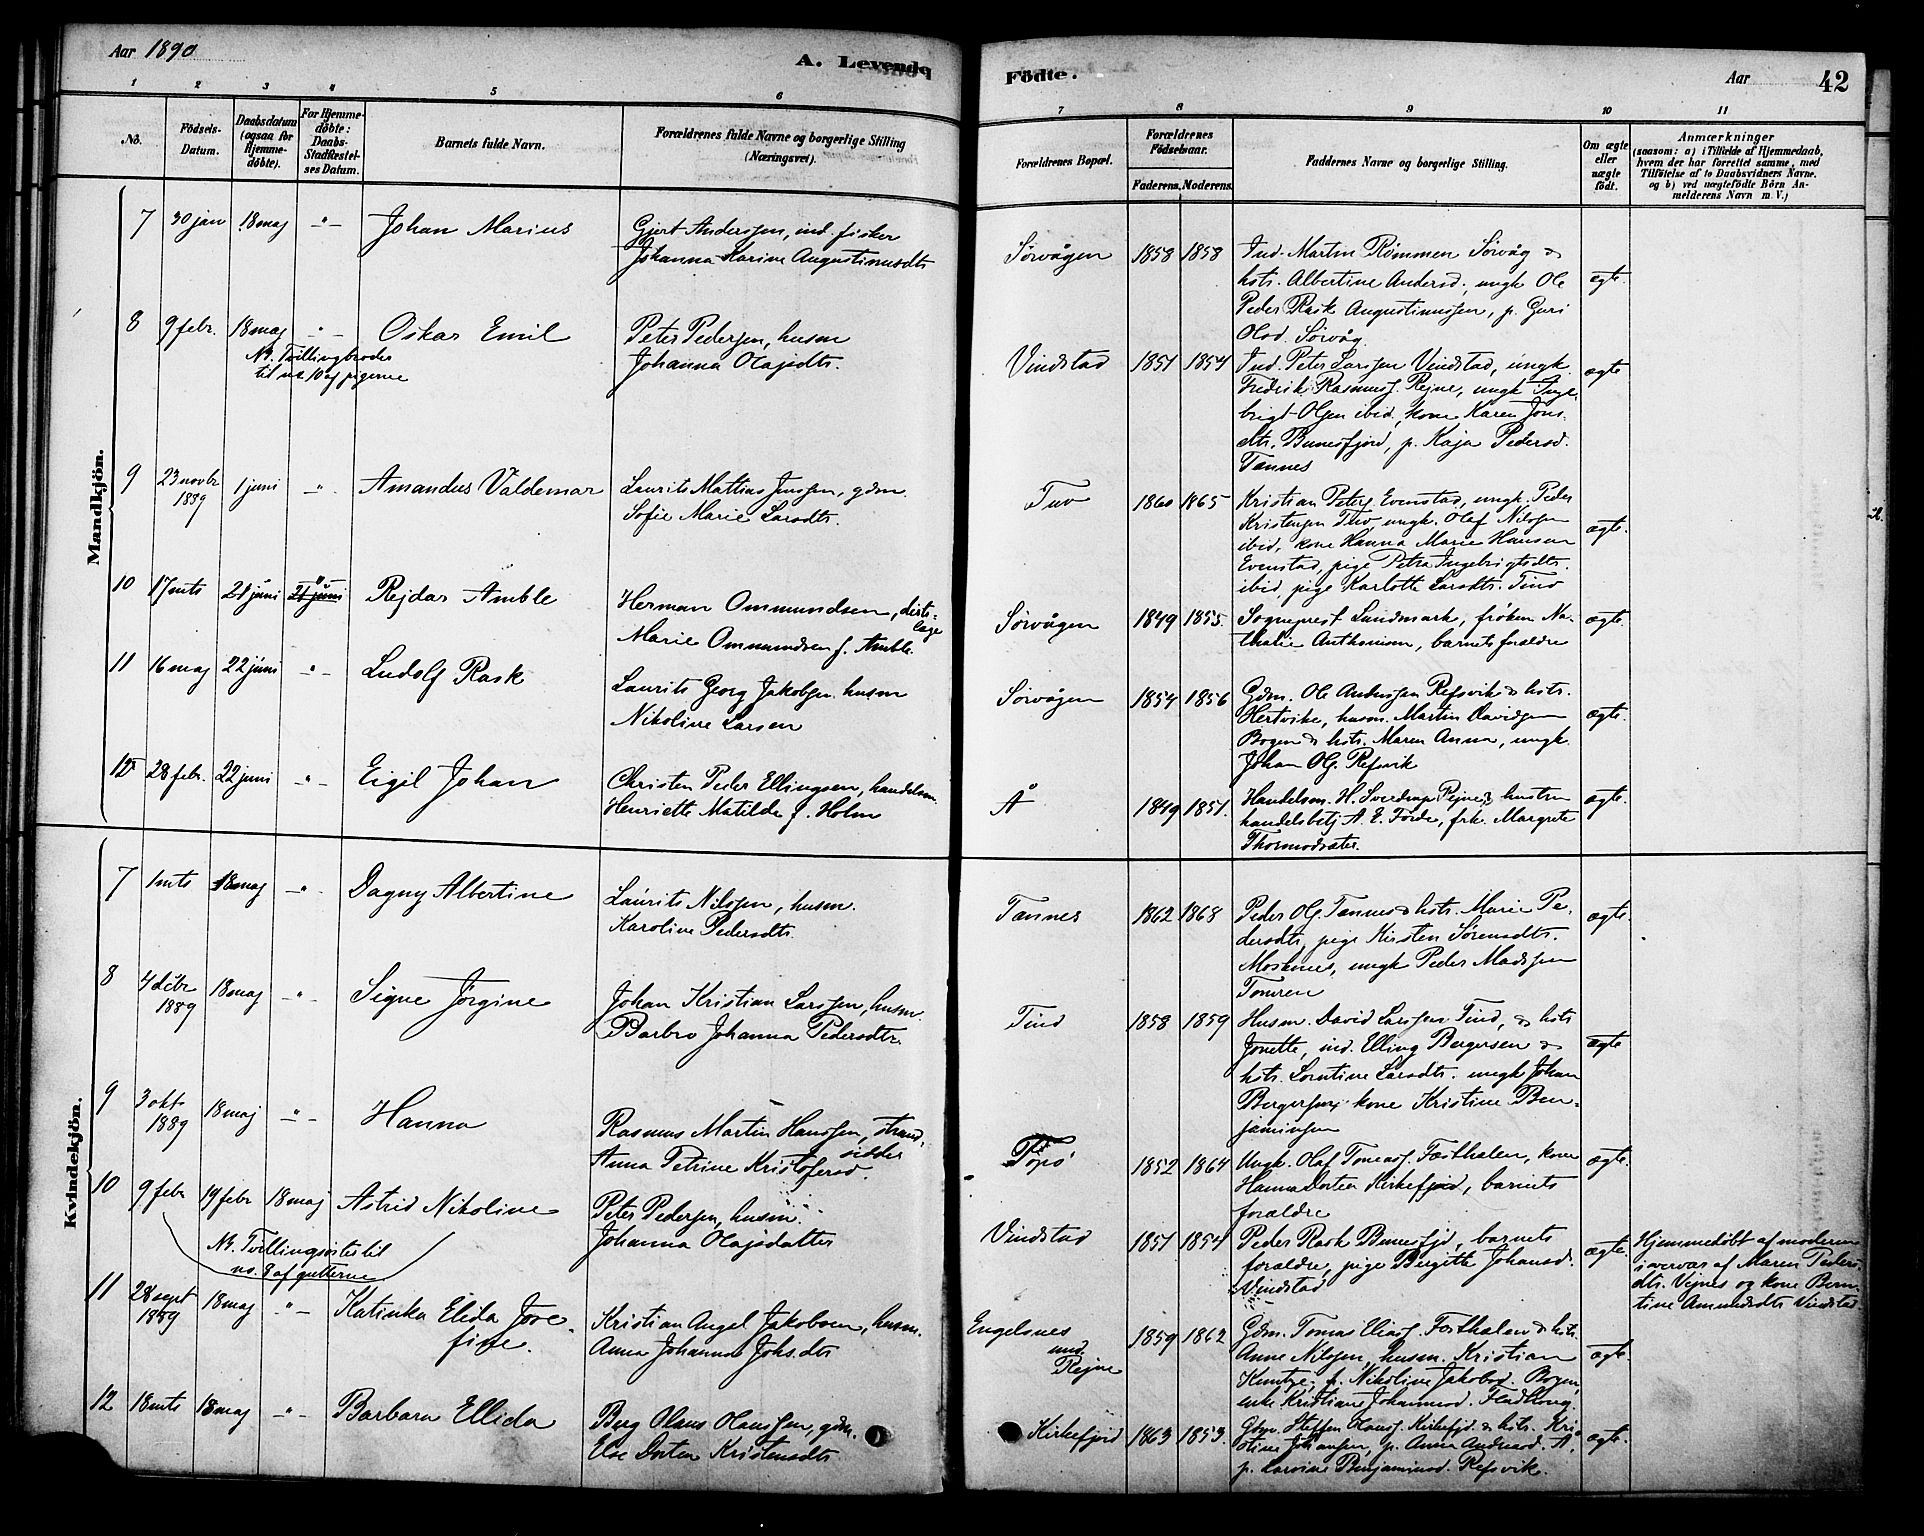 Aar 1890
A. Levende
Födte.
Aar
42
1 2 3 4 5 6 7 8 9 10 11
No.
Födsels-Datum.
Daabsdatum (ogsaa for Hjemme-döbte).
For Hjemme-döbte: Daabs-Stadfæstel-ses Datum.
Barnets fulde Navn.
Forældrenes fulde Navne og borgerlige Stilling (Næringsvei).
Forældrenes Bopæl.
Forældrenes Födselsaar.
Faderens. Moderens.
Faddernes Navne og borgerlige Stilling.
Om ægte eller uægte födt.
Anmærkninger
(saasom: a) i Tilfælde af Hjemmedaab,
hvem der har forrettet samme, med
Tilföielse af to Daabsvidners Navne.
og b) ved uægtefödte Börn An-
melderens Navn m. V.)
Mandkjön.
7 30 jan 18 maj -"- Johan Marius
Gjert Anderssen, ind. fisker
Johanna Marine Augustinusdtr
Sörvågen 1858 1858
Ind. Martin Rømmen Sörvåg &
hstr. Albertine Andersd., ungk Ole
Peder Rask Augustinussen, p. Guri
Olsd. Sörvåg.
ægte.
8 9 febr. 18 maj -"- Oskar Emil
NB. Tvillingbroder
til no. 10 af pigerne
Peter Pedersen, husm
Johanna Olajsdtr.
Vindstad 1851 1854
Ind. Peter Larssen Vindstad, ungk.
Fredrik Rasmuss. Rejne, ungk Inge-
brigt Olsen ibid, kone Karen Jons-
dtr. Bunesfjord, p. Kaja Pedersd.
Tennes
ægte
9 23 novbr 1889 1 juni -"- Amandus Valdemar
Laurits Mattias Jenssen, gdm.
Sofie Marie Larsdtr.
Tuv 1860 1865
Kristian Peters. Evenstad, ungk. Peder
Kristensen Tuv, ungk. Olaf Nilssen
ibid, kone Hanna Marie Hansen
Evenstad, pige Petra Ingebrigtsdtr.
ibid, pige Karlotte Larsdtr. Tind
ægte.
10 17 mts 21 juni -"- 21 juni Rejdar Amble
Herman Ommundsen, distr.
læge
Marie Ommundsen f. Amble
Sörvågen 1849 1855.
Sogneprest Lundmark, frøken Na-
thalie Anthonisen, barnets forældre
ægte.
11 16 maj 22 juni -"- Ludolf Rask
Laurits Georg Jakobsen husm
Nikoline Larsen
Sörvågen 1854 1856
Gdm. Ole Anderssen Refsvik & hstr.
Hertvike, husm. Martin Davidsen
Bogen & hstr. Maren Anna, ungk.
Johan Ols. Refsvik
ægte.
12 28 febr. 22 juni -"- Eigil Johan
Christen Peder Ellingsen, handelsm.
Henriette Matilde f. Holm
Å 1849 1851.
Handelsm. H. Sverdrup Rejne & hustru
handelsbetj A. E. Förde, frk. Margrete
Thormodsæter.
ægte.
Kvindekjön.
7 1 mts 18 maj -"- Dagny Albertine
Laurits Nilssen, husm.
Karoline Pedersdtr.
Tennes 1862 1868
Peder Ols. Tennes & hstr. Marie Pe-
dersdtr, pige Kirsten Sørensdtr.
Moskenes, ungk Peder Madssen
Tomren
ægte.
8 4 decbr 1889 18 maj -"- Signe Jörgine
Johan Kristian Larssen, husm.
Barbro Johanna Pedersdtr.
Tind 1858 1859
Husm. David Larssen Tind, & hstr
Jonette, ind. Elling Bergersen &
hstr. Lorntine Larsdtr. ungk Johan
Bergersen, kone Kristine Ben-
jaminsen
ægte
9 3 okt. 1889 18 maj -"- Hanna
Rasmus Martin Hanssen, strand-
sidder
Anna Petrine Kristofersd.
Topö 1852 1864
Ungk. Olaf Tomass. Festhælen, kone
Hanna Dortea Kirkefjord, barnets
forældre
ægte.
10 9 febr 19 febr 18 maj Astrid Nikoline
NB. Tvillingsöster til
no. 8 af gutterne
Peter Pedersen, husm.
Johanna Olajsdatter
Vindstad 1851 1854
Peder Rask Bunesfjd, barnets
forældre, pige Bergitte Johansd.
Vindstad
ægte.
Hjemmedøbt af moderen
i overvær af Maren Peders-
dtr. Vejnes og kone Bern-
tine Amundsdtr Vindstad.
11 28 sept 1889 18 maj -"- Katinka Elida Jose-
fine.
Kristian Angel Jakobsen, husm.
Anna Johanna Johs.dtr
Engelsnes
und.
Rejne 1859 1862
Gdm. Tomas Eliass. Festhælen & hstr.
Anne Nilssen, husm. Kristian
Kuntze, p. Nikoline Jakobsd. Bogen,
enke Kristiane Johannesd.
ægte.
12 18 mts 18 maj -"- Barbara Ellida
Berg Olaus Olaussen, gdm.
Else Dortea Kristensdtr
Kirkefjord 1863 1853.
Gdm. Steffen Hanss. Kirkefjd. & hstr. Kri-
stine Johansen, p. Anna Andreasd. Å,
p. Lovine Benjaminsd. Refsvik.
ægte.